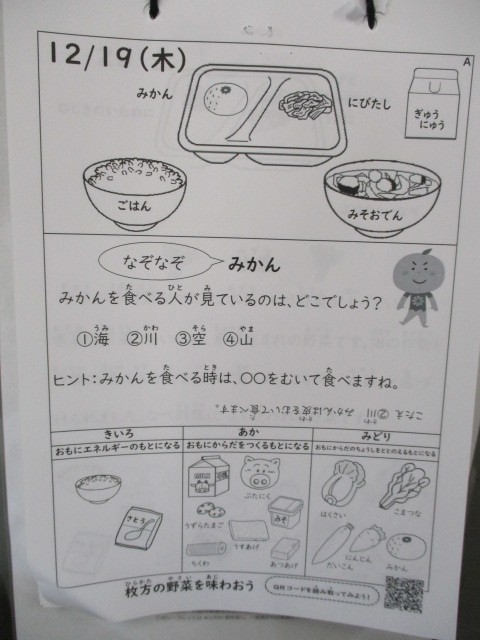 12/19(木)
A
みかん
にびたし
ぎゅう
にゅう
ごはん
みそおでん
なぞなぞ みかん
みかんを食べる人が見ているのは、どこでしょう？
①海 ②川 ③空 ④山
ヒント：みかんを食べる時は、〇〇をむいて食べますね。
こたえ ②川 みかんは皮をむいて食べます。
きいろ あか みどり
おもにエネルギーのもとになる おもにからだをつくるもとになる おもにからだのちょうしをととのえるもとになる
さとう
ぶたにく
みそ
うずらたまご
うすあげ
ちくわ
あつあげ
はくさい
こまつな
にんじん
だいこん
みかん
枚方の野菜を味わおう
QRコードを読み取ってみよう！